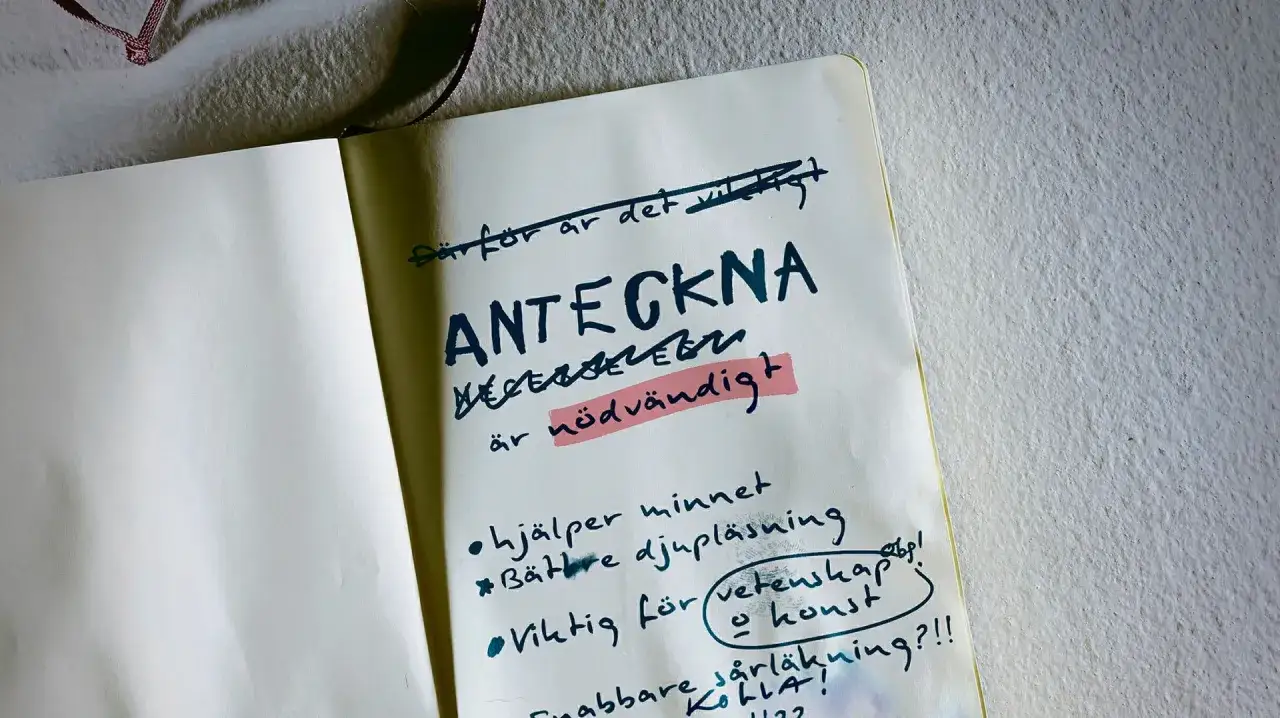 Därför är det viktigt
ANTECKNA
är nödvändigt
• hjälper minnet
* Bättre djupläsning
• Viktig för vetenskap obs!
o konst
Snabbare sårläkning?!!
KOLLA!